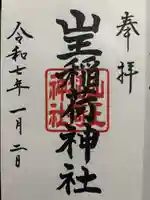 奉拝
山王稲荷神社
令和七年一月二日